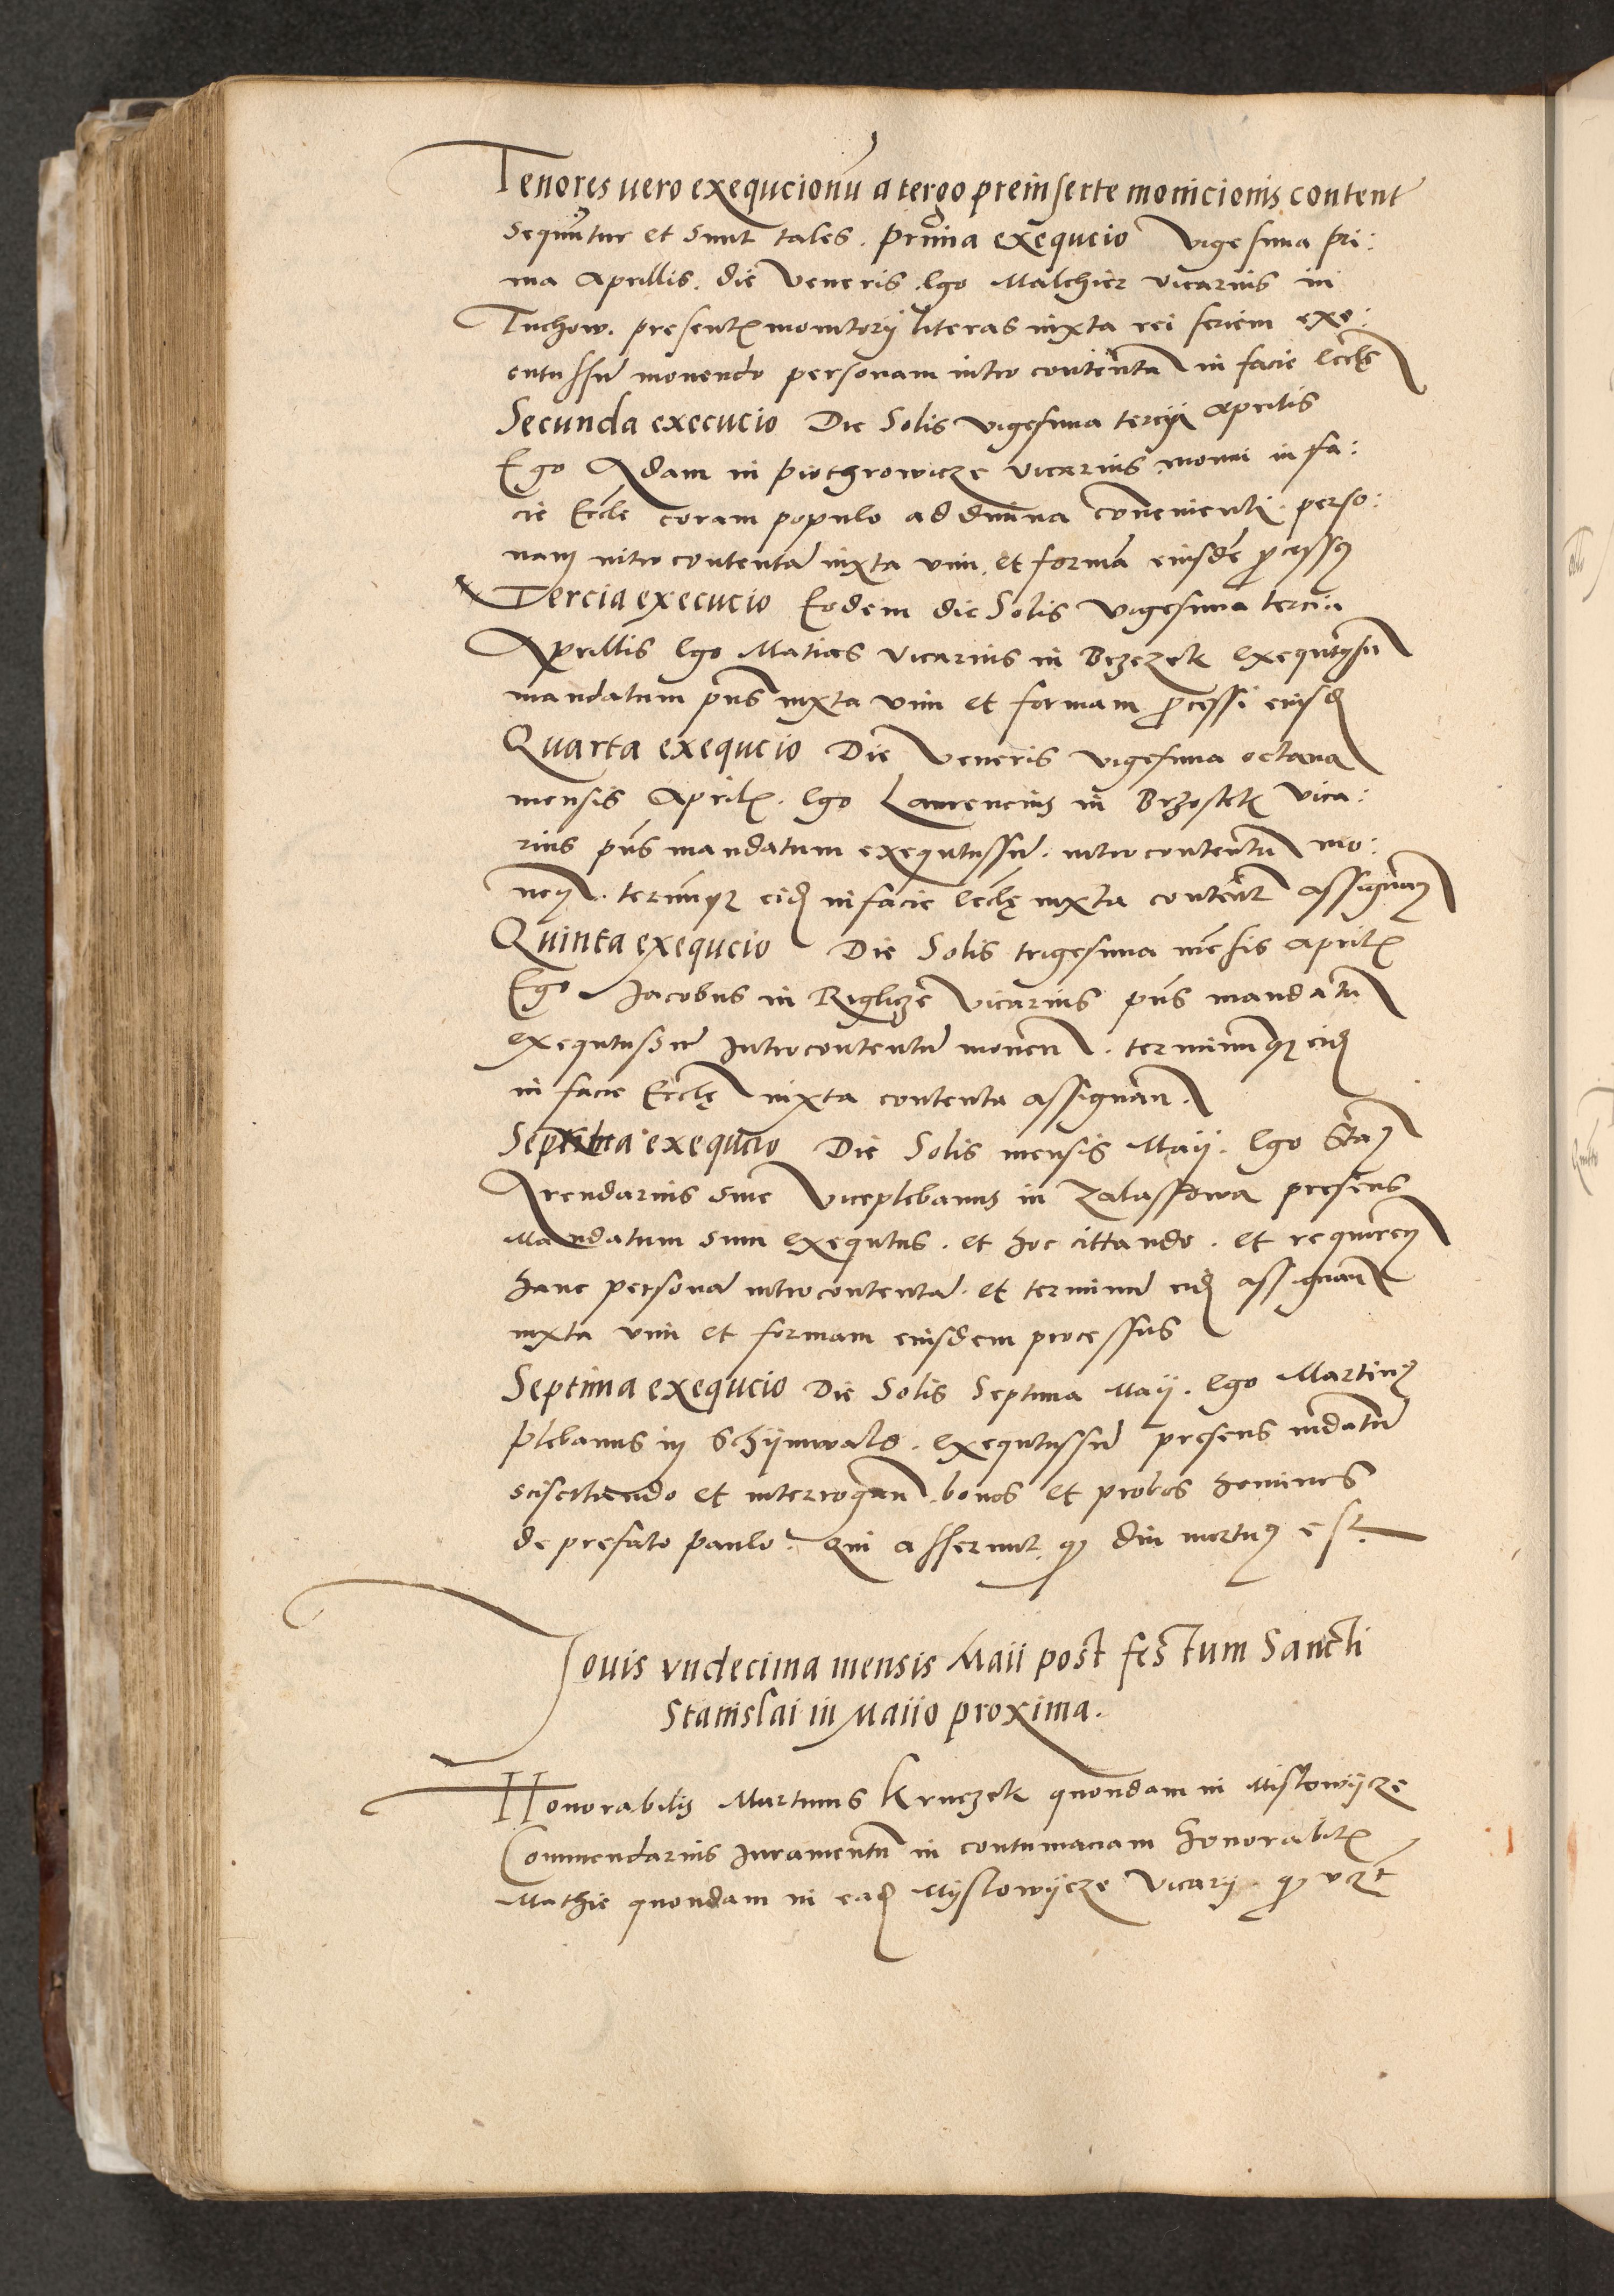 Tenores vero exequcionū a tergo preinserte monicionis content
sequūtur et sunt tales. prima exequcio vigesima pri:
ma Aprillis. die Veneris. Ego Malchier vicarius in
Tuchow. present monitorÿ literas iuxta rei seriem exe:
cutussū monendo personam intro contentā in facie Eccłę
Secunda execucio Die Solis vigesima tercia Aprilis
Ego Adam in piothrowicze vicarius monui in fa:
cie Eccłe coram populo ad diuina conuenient perso:
nam intro contentā iuxta vim et formā eiusdē pcessus
Tercia execucio Eodem die Solis vigesima tercia
Aprillis Ego Matias vicarius in Brzezek exequtusū
mandatum pñs iuxta vim et formam pcessi eiusd
Quarta exequcio Die Veneris vigesima octaua
mensis April. Ego Laurencius in Brzostek vica:
rius pñs mandatum exequtussū. intro contentū mo:
nen. terminūq eid in facie Eccłę iuxta content assignan
Quinta exequcio Die Solis trigesima mēsis April
Ego Jacobus in Rzglicze vicarius pñs mandatū
exequtussū Introcontentū monen. terminūq eid
in facie Eccłę iuxta contenta assignan.
exequcio Die Solis mensis Maÿ. Ego Stan
Arendarius siue viceplebanus in Zalassowa presens
Mandatum sum exequtus. et hoc cittando. et requiren
hanc personā introcontentā. et terminū eid assignan
iuxta vim et formam eiusdem processus
Septima exequcio Die Solis Septima Maÿ. Ego Martinus
plebanus in Schÿnwald. exequtussū presens mdatū
sciscitando et interrogan bonos et probos homines
de prefato paulo. Qui asserunt q diu mortuus est.
Jouis vndecima mensis Maii post festum Sancti
Stanislai in Maiio proxima.
Honorabilis Martinus Kruczek quondam in Mislowÿcze
Commendarius Juramentū in contumaciam Honorabil
Mathie quondam in ead Mÿslowÿcze Vicarÿ q